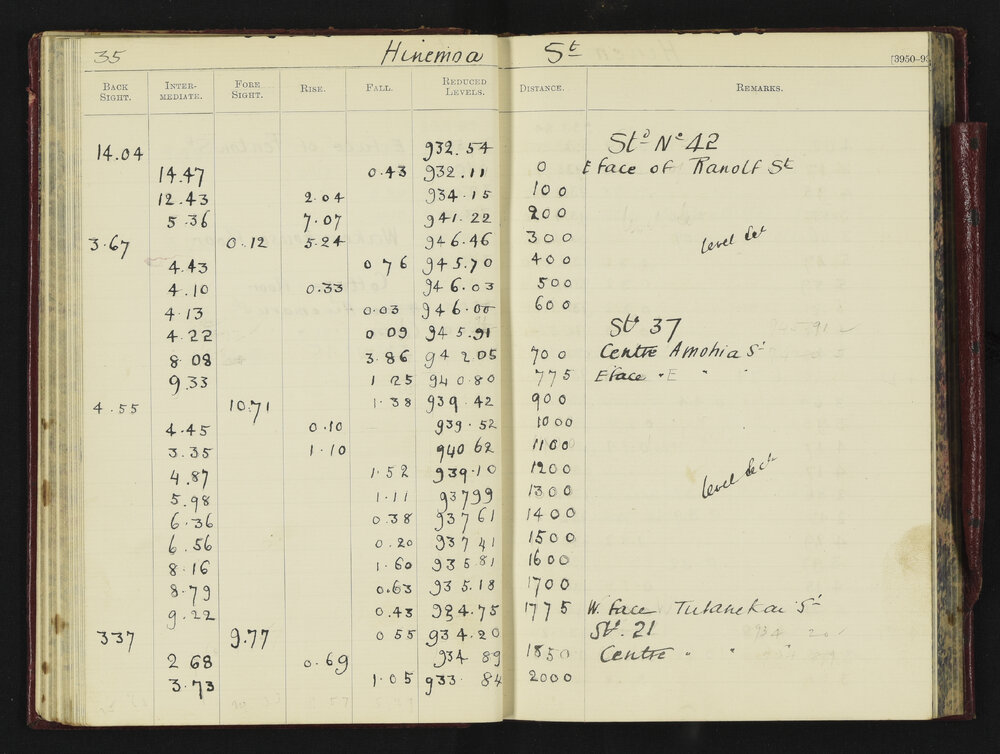 35 Hinemoa St [3950-93
BACK SIGHT. INTERMEDIATE. FORE SIGHT. RISE. FALL. REDUCED LEVELS. DISTANCE. REMARKS.
14.04 932.54 Std No 42
14.47 0.43 932.11 0 E face of Ranolf St
12.43 2.04 934.15 100
5.36 7.07 941.22 200
3.67 0.12 5.24 946.46 300 level
4.43 0 76 945.70 400
4.10 0.33 946.03 500
4.13 0.03 946.00 600
4.22 0.09 945.91 Std 37
8 08 3.86 942.05 700 Centre Amohia St
9.33 1 25 940.80 775 E face " E " "
4.55 10.71 1.38 939.42 900
4.45 0.10 939.52 1000
3.35 1.10 940 62 1100
4.87 1.52 939.10 1200
5.98 1.11 93799 1300 level
6.36 0.38 937 61 1400
6.56 0.20 937 41 1500
8.16 1.60 935 81 1600
8.79 0.63 935.18 1700
9.22 0.43 934.75 1775 W. face Tutanekai St
337 9.77 0 55 934.20 Std. 21
2 68 0.69 934 89 1850 Centre " " "
3.73 1.05 933 84 2000